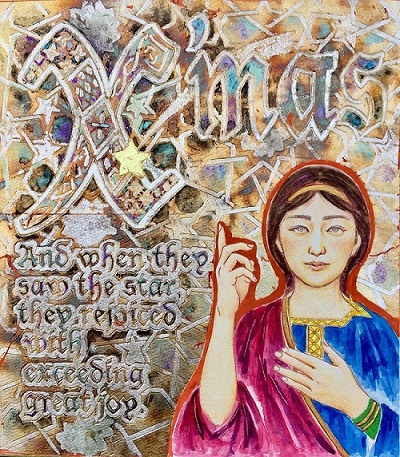 X'mas
And when they
saw the star,
they rejoiced
with
exceeding
great joy.